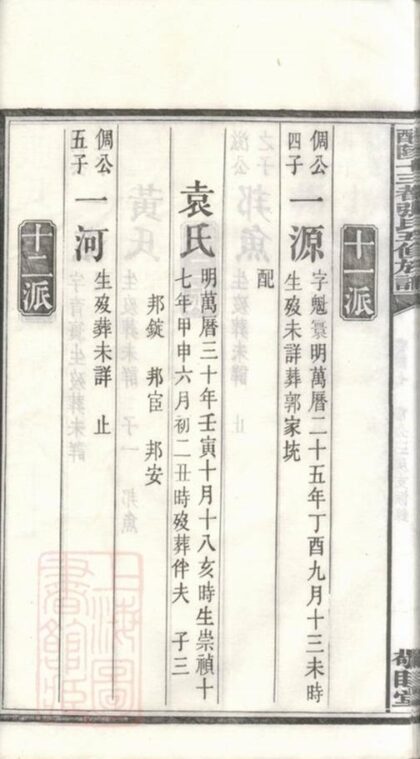 十一派
倜公四子
一源
字魁纂明萬曆二十五年丁酉九月十三未時
生歿未詳葬郭家坑
配
袁氏
明萬曆三十年壬寅十月十八亥時生崇禎十
七年甲申六月初二丑時歿葬伴夫 子三
邦錠 邦宦 邦安
倜公五子
一河
生歿葬未詳 止
十二派
敬睦堂
上海圖書館藏